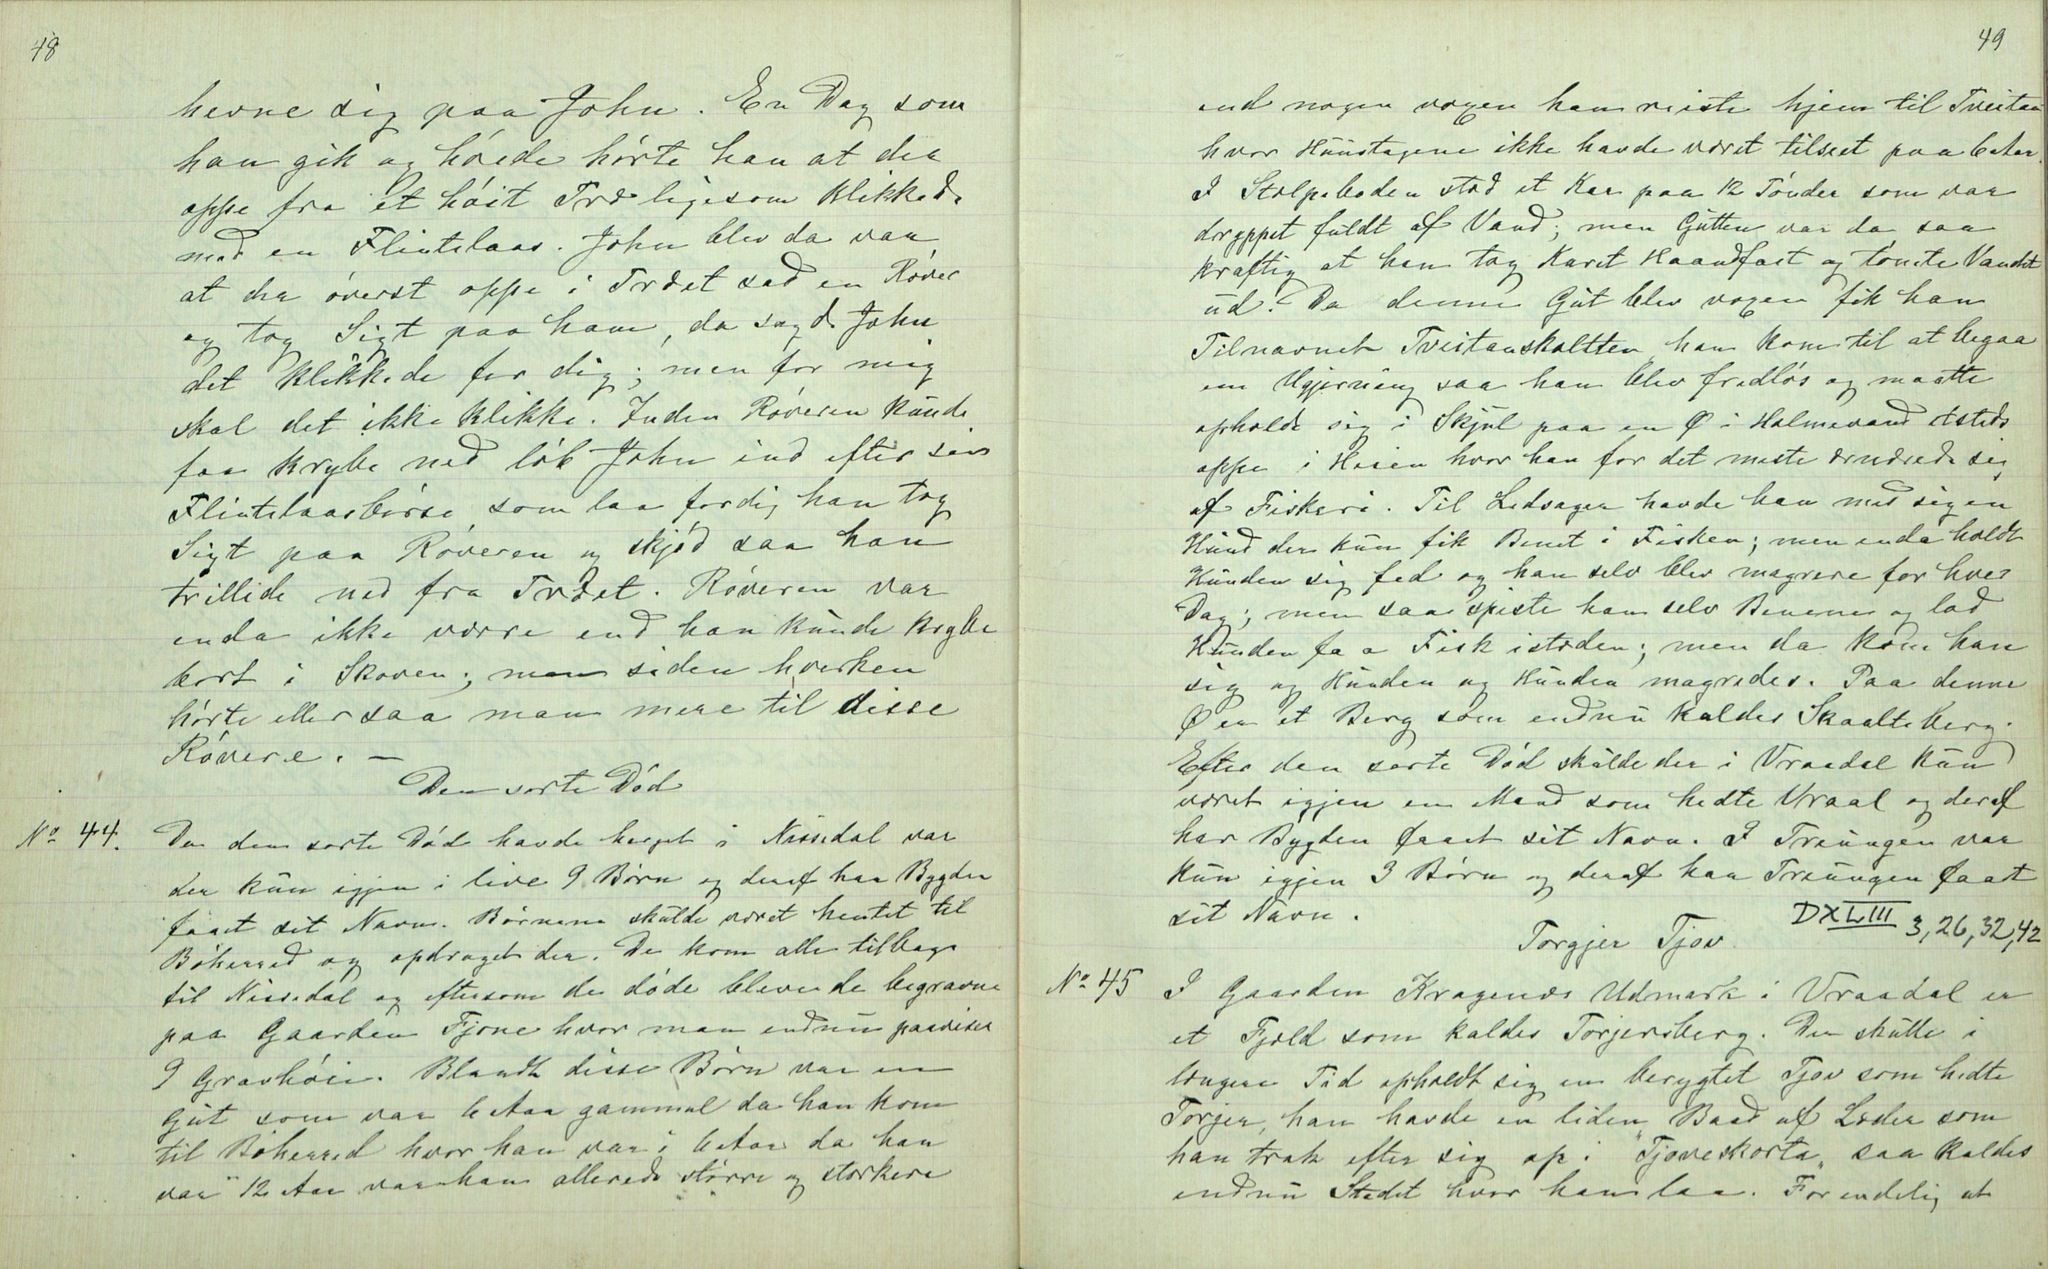 48
hevne sig paa John. En Dag som
han gik og høiede hørte han at der
oppe fra et høit Træ ligesom klikkede
med en Flintelaas. John blev da var
at der øverst oppe i Træet sad en Røver
og tog Sigt paa ham, da sagde John
det klikkede for dig; men for mig
skal det ikke klikke. Inden Røveren kunde
faa krybe ned løb John ind efter sin
Flintelaasbørse, som laa færdig han tog
Sigt paa Røveren og skjød saa han
trillide ned fra Træet. Røveren var
enda ikke værre end han kunde krybe
bort i Skoven; men siden hverken
hørte eller saa man mere til disse
Røvere. —
Den sorte Død
No 44. Da den sorte Død havde herget i Nissedal var
der kun igjen i live 9 Børn og deraf har Bygden
faaet sit Navn. Børnene skulde været hentet til
Bøherred og opdraget der. De kom alle tilbage
til Nissedal og eftersom de døde bleve de begravne
paa Gaarden Fjone hvor man endnu paaviser
9 Gravhøie. Blandt disse Børn var en
Gut som var 6 Aar gammel da han kom
til Bøherred hvor han var i 6 Aar da han
var 12 Aar var han allerede større og stærkere
49
end nogen voxen han reiste hjem til Tveitan
hvor Hustagene ikke havde været tilseet paa 6 Aar.
I Stolpeboden stod et Kar paa 12 Tønder som var
dryppet fuldt af Vand; men Gutten var da saa
kraftig at han tog Karet Haandfast og tømte Vandet
ud. Da denne Gut blev voxen fik han
Tilnavnet Tveitanskaltten, han kom til at begaa
em Ugjerning saa han blev fredløs og maatte
opholde sig i Skjul paa en Ø i Holmevand etsteds
oppe i Heien hvor han for det meste ernærede sig
af Fiskeri. Til Ledsager havde han med sig en
Hund der kun fik Benet i Fisken; men enda holdt
Hunden sig fed og han selv blev magrere for hver
Dag; men saa spiste han selv Benene og lod
Hunden faa Fisk isteden; men da kom han
sig og Hunden og Hunden magredes. Paa denne
Ø er et Berg som endnu kaldes Skaalteberg.
Efter den sorte Død skulde der i Vraadal kun
været igjen en Mand som hedte Vraal og deraf
har Bygden faaet sit Navn. I Treungen var
kun igjen 3 Børn og deraf har Treungen faaet
sit Navn.
DXLIII 3, 26, 32, 42
Torgjer Tjov
No 45 I Gaarden Kragenæs Udmark i Vraadal er
et Fjeld som kaldes Torjersberg. Der skulle i
længere Tid opholdt sig en berygtet Tjov som hedte
Torjer, han havde en liden Baad af Læder som
han trak efter sig op i "Tjoveskorta" saa kaldes
endnu Stedet hvor han laa. For endelig at